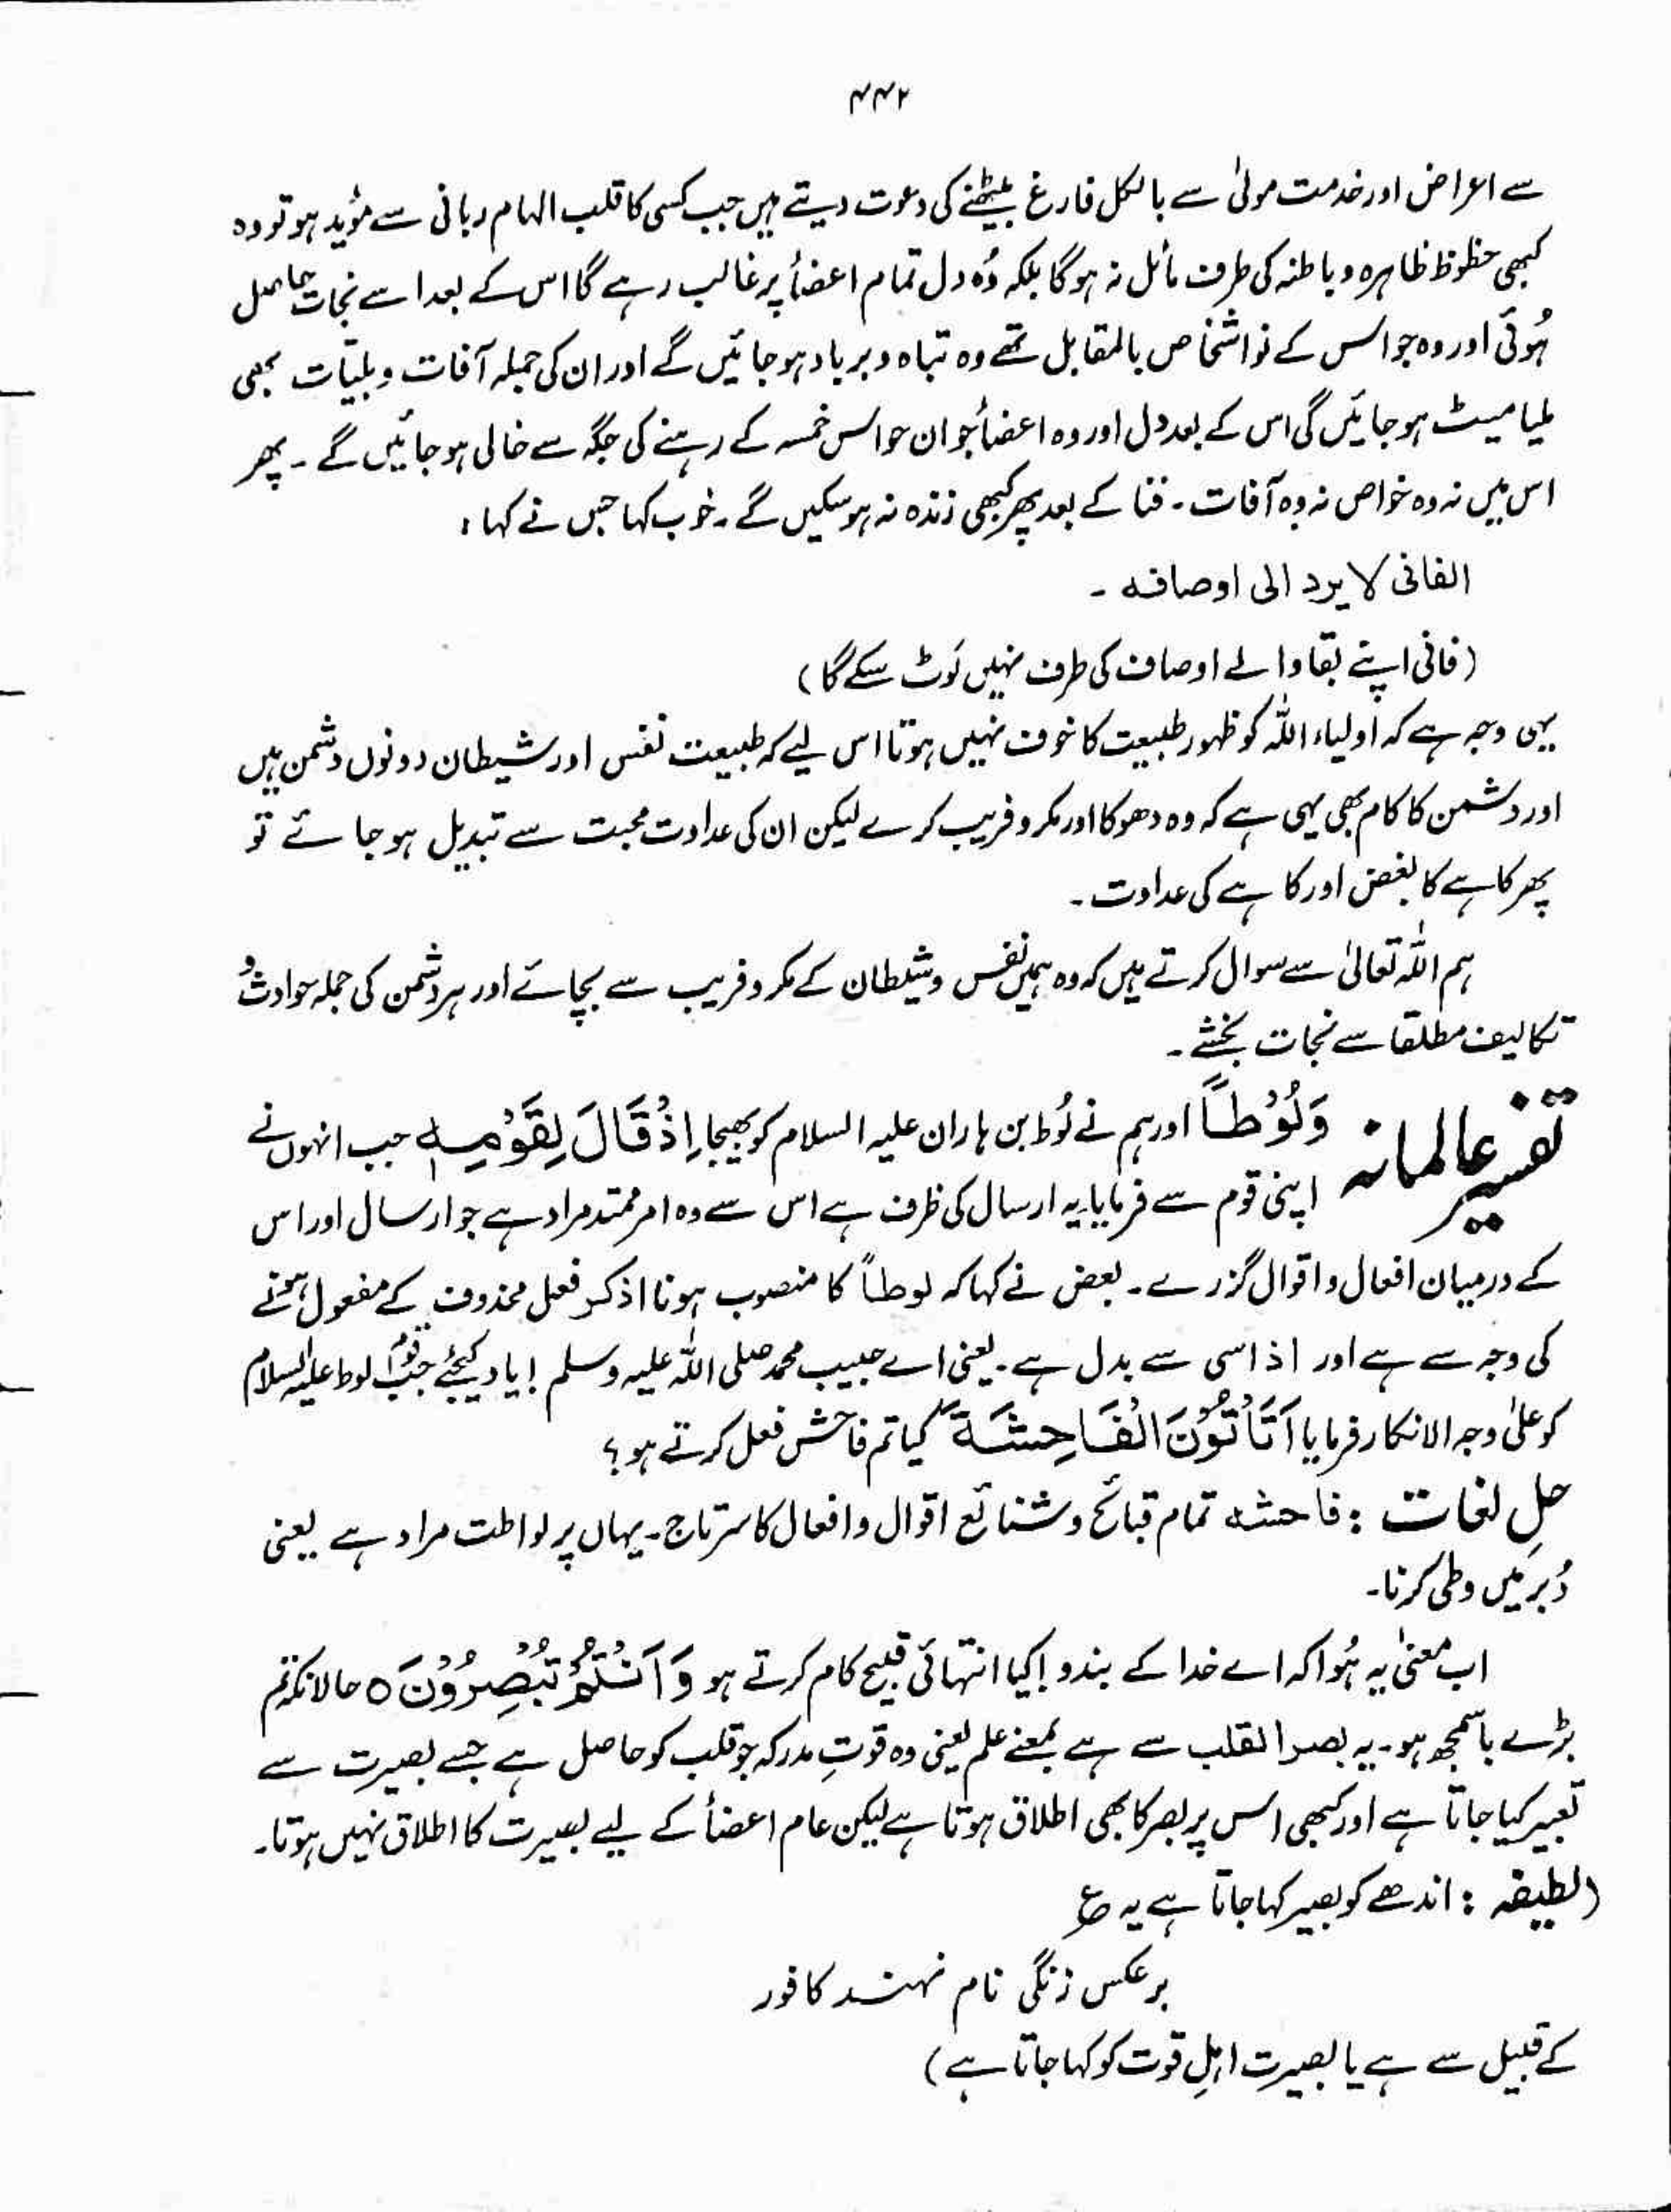 ۴۴۲
سے اعراض اور خدمت مولیٰ سے بالکل فارغ بیٹھنے کی دعوت دیتے ہیں جب کسی کا قلب الہام ربانی سے مؤید ہو تو وہ
کبھی حظوظ ظاہرہ و باطنہ کی طرف مائل نہ ہوگا بلکہ وُہ دل تمام اعضأ پر غالب رہے گا اس کے بعد اسے نجات حاصل
ہُوئی اور وہ جو اس کے نو اشخاص بالمقابل تھے وہ تباہ و برباد ہو جائیں گے اور ان کی جملہ آفات و بلیّات بھی
ملیامیٹ ہو جائیں گی اس کے بعد دل اور وہ اعضأ جو ان حواس خمسہ کے رہنے کی جگہ سے خالی ہو جائیں گے ۔ پھر
اس میں نہ وہ خواص نہ وہ آفات ۔ فنا کے بعد پھر کبھی زندہ نہ ہو سکیں گے ۔ خُوب کہا جس نے کہا :
الفانی لا یرد الی اوصافہ ۔
(فانی اپنے بقا والے اوصاف کی طرف نہیں لَوٹ سکے گا)
یہی وجہ ہے کہ اولیاء اللہ کو ظہور طبیعت کا خوف نہیں ہوتا اس لیے کہ طبیعت نفس اور شیطان دونوں دشمن ہیں
اور دشمن کا کام بھی یہی ہے کہ وہ دھوکا اور مکر و فریب کرے لیکن ان کی عداوت محبت سے تبدیل ہو جائے تو
پھر کاہے کا بغض اور کاہے کی عداوت ۔
ہم اللہ تعالیٰ سے سوال کرتے ہیں کہ وہ ہمیں نفس و شیطان کے مکر و فریب سے بچائے اور ہر دشمن کی جملہ حوادث و
تکالیف مطلقا سے نجات بخشے ۔
تفسیر عالمانہ وَلُوْطًا اور ہم نے لُوط بن ہاران علیہ السلام کو بھیجا اِذْ قَالَ لِقَوْمِہٖ جب انہوں نے
اپنی قوم سے فرمایا یہ ارسال کی ظرف ہے اس سے وہ امر ممتد مراد ہے جو ارسال اور اس
کے درمیان افعال و اقوال گزرے ۔ بعض نے کہا کہ لوطاً کا منصوب ہونا اذکر فعل محذوف کے مفعول ہونے
کی وجہ سے ہے اور اذ اسی سے بدل ہے ۔ یعنی اے حبیب محمد صلی اللہ علیہ وسلم ! یاد کیجئے جب قوم لوط علیہ السلام
کو علیٰ وجہ الانکار فرمایا اَتَاْتُوْنَ الْفَاحِشَۃَ کیا تم فاحش فعل کرتے ہو ؟
حلِ لغات : فاحشہ تمام قبائح و شنائع اقوال و افعال کا سرتاج ۔ یہاں پر لواطت مراد ہے یعنی
دُبر میں وطی کرنا ۔
اب معنیٰ یہ ہُوا کہ اے خدا کے بندو ! کیا انتہائی قبیح کام کرتے ہو وَاَنْتُمْ تُبْصِرُوْنَ ○ حالانکہ تم
بڑے باسمجھ ہو ۔ یہ بصر القلب سے ہے بمعنے علم یعنی وہ قوتِ مدرکہ جو قلب کو حاصل ہے جسے بصیرت سے
تعبیر کیا جاتا ہے اور کبھی اس پر بصر کا بھی اطلاق ہوتا ہے لیکن عام اعضأ کے لیے بصیرت کا اطلاق نہیں ہوتا ۔
(لطیفہ : اندھے کو بصیر کہا جاتا ہے یہ ع
برعکس زنگی نام نہند کافور
کے قبیل سے ہے یا بصیرت اہلِ قوت کو کہا جاتا ہے)